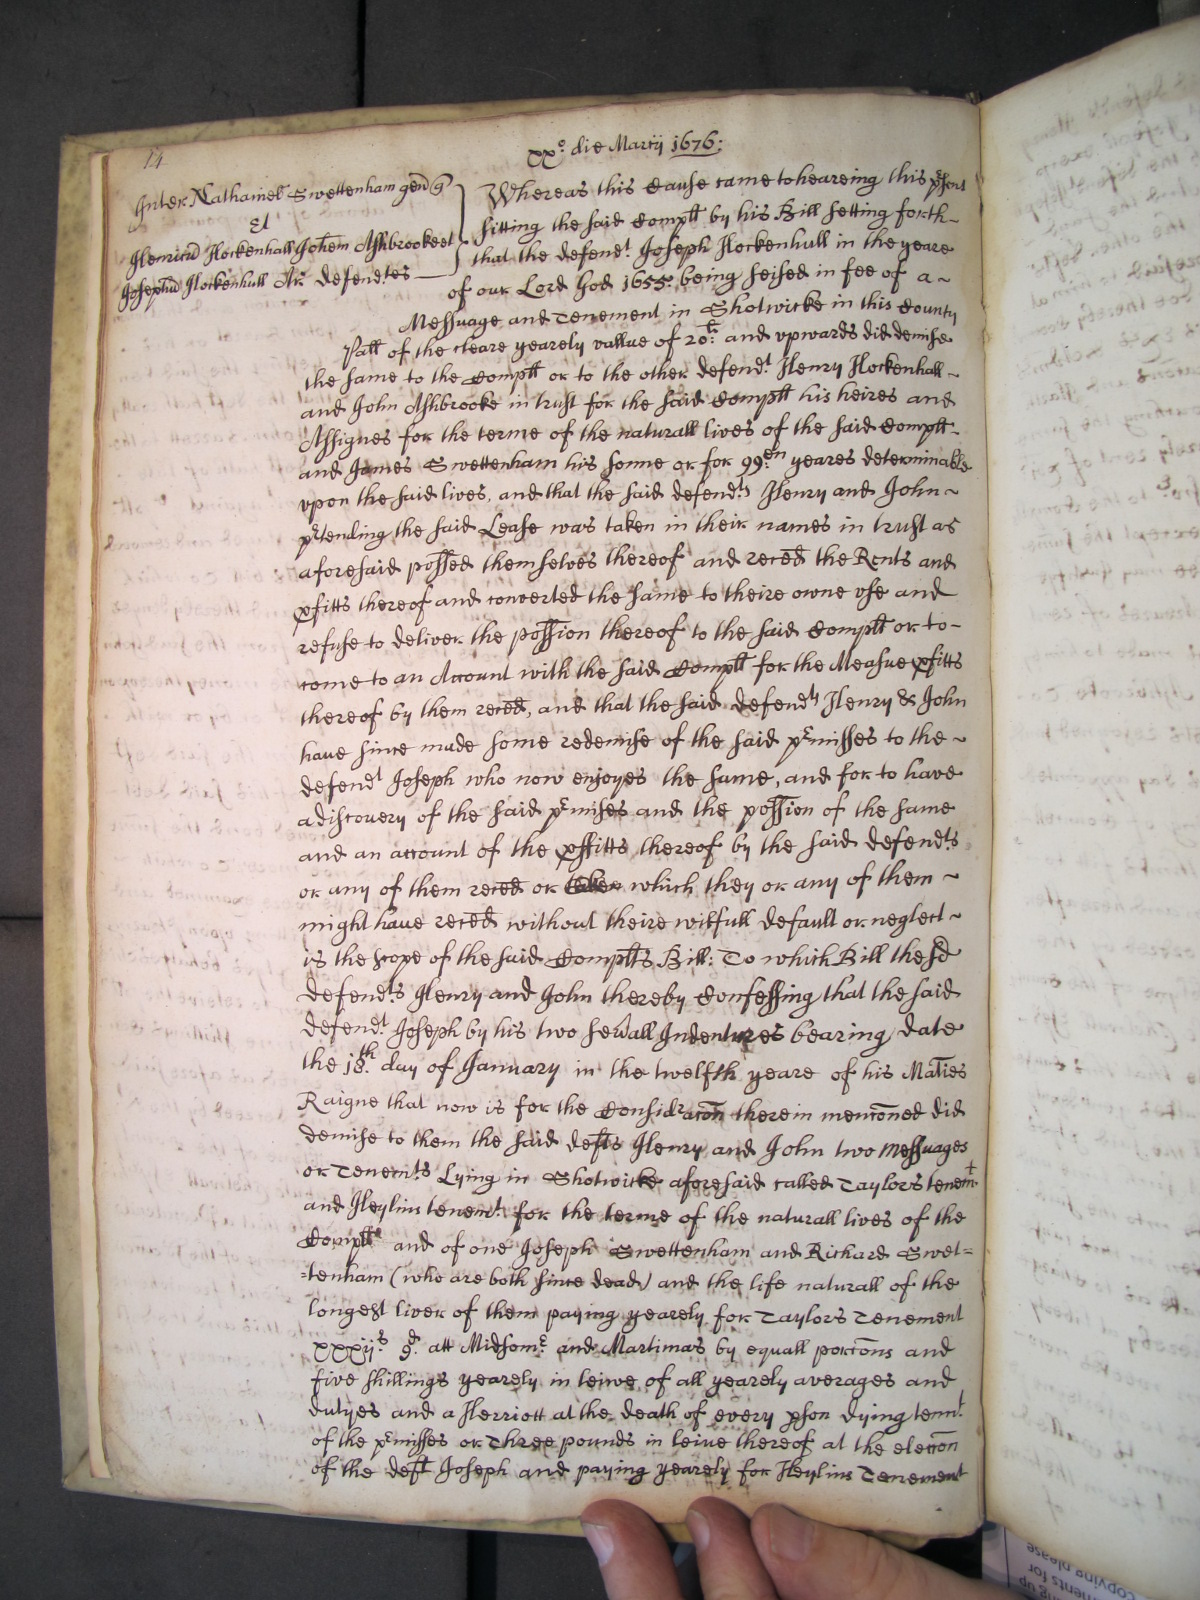 14
xxo die Martij 1676:
Inter Nathaniel Swettenham gen q
Et
Henricu Hockenhall Johem Ashbrooke et
Josephu Hockenhull Ar defendtes
Whereas this Cause came to heareing this psent
sitting the said Complt by his Bill setting forth
that the defendt Joseph Hockenhull in the yeare
of our Lord God 1655. being seised in fee of a
Messuage and Tenement in Shotwicke in this County
Pall of the cleare yearely vallue of 20l: and vpwards did demise
the same to the Complt or to the other defendt Henry Hockenhall
and John Ashbrooke in trust for the said Complt his heires and
Assignes for the terme of the naturall lives of the said Complt
and James Swettenham his sonne or for 99en yeares determinable
vpon the said lives, and that the said defendts Henry and John
prtending the said Lease was taken in their names in trust as
aforesaid possed themselves thereof and reced the Rents and
pfitts thereof and converted the same to theire owne vse and
refuse to deliver the possion thereof to the said Complt or to
come to an Account with the said Complt for the Measne pfitts
thereof by them reced, and that the said defendts Henry & John
have since made some redemise of the said prmisses to the
defendt Joseph who now enjoyes the same, and for to have
a discovery of the said prmises and the possion of the same
and an account of the pffitts thereof by the said defendts
or any of them reced or which they or any of them
might have reced without theire wilfull default or neglect
is the scope of the said Complts Bill: To which Bill the sd
defendts Henry and John thereby Confessing that the said
defendt Joseph by his two sevall Indentures bearing date
the 18th day of January in the twelfth yeare of his Maties
Raigne that now is for the Considracon therein menconed did
demise to them the said defts Henry and John two messuages
or Tenemts Lying in Shotwicke aforesaid called Taylors tenemt
and Heylins tenemt for the terme of the naturall lives of the
Complt and of one Joseph Swettenham and Richard Swet=
=tenham (who are both since dead) and the life naturall of the
longest liver of them paying yearely for Taylors Tenement
xxxijs 9d. att Midsomr and Martimas by equall porcons and
five shillings yearely in leiwe of all yearely averages and
dutyes and a Herriott at the death of every pson dying tennt
of the prmisses or Three pounds in leiue thereof at the eleccon
of the deft Joseph and paying yearely for Heylins Tenement